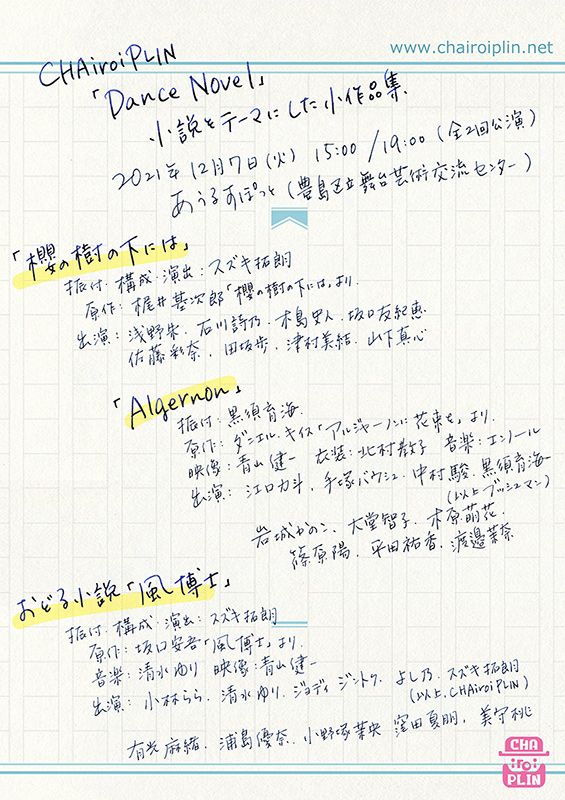 www.chairoiplin.net
CHAiroiPLIN
「Dance Novel」
小説をテーマにした小作品集
2021年12月7日(火) 15:00/19:00(全2回公演)
あうるすぽっと(豊島区立舞台芸術交流センター)
「櫻の樹の下には」
振付・構成・演出:スズキ拓朗
原作:梶井基次郎「櫻の樹の下には」より
出演:浅野朱、石川詩乃、木島史人、坂口友紀恵
佐藤彩奈、田坂歩、津村美結、山下真心
「Algernon」
振付:黒須育海
原作:ダニエル・キイス「アルジャーノンに花束を」より
映像:青山健一 衣装:北村教子 音楽:エンノール
出演:江口力斗、手塚バウシュ、中村駿、黒須育海
(以上ブッシュマン)
岩城かのこ、大堂智子、木原萌花、
篠原陽、平田祐香、渡邉茉奈
おどる小説「風博士」
振付・構成・演出:スズキ拓朗
原作:坂口安吾「風博士」より
音楽:清水ゆり 映像:青山健一
出演:小林らら、清水ゆり、ジョディ ジントク、よし乃、スズキ拓朗
(以上、CHAiroiPLIN)
有光麻緒、浦島優奈、小野塚茉央 窪田夏朋、美守桃
CHA
iroi
PLIN